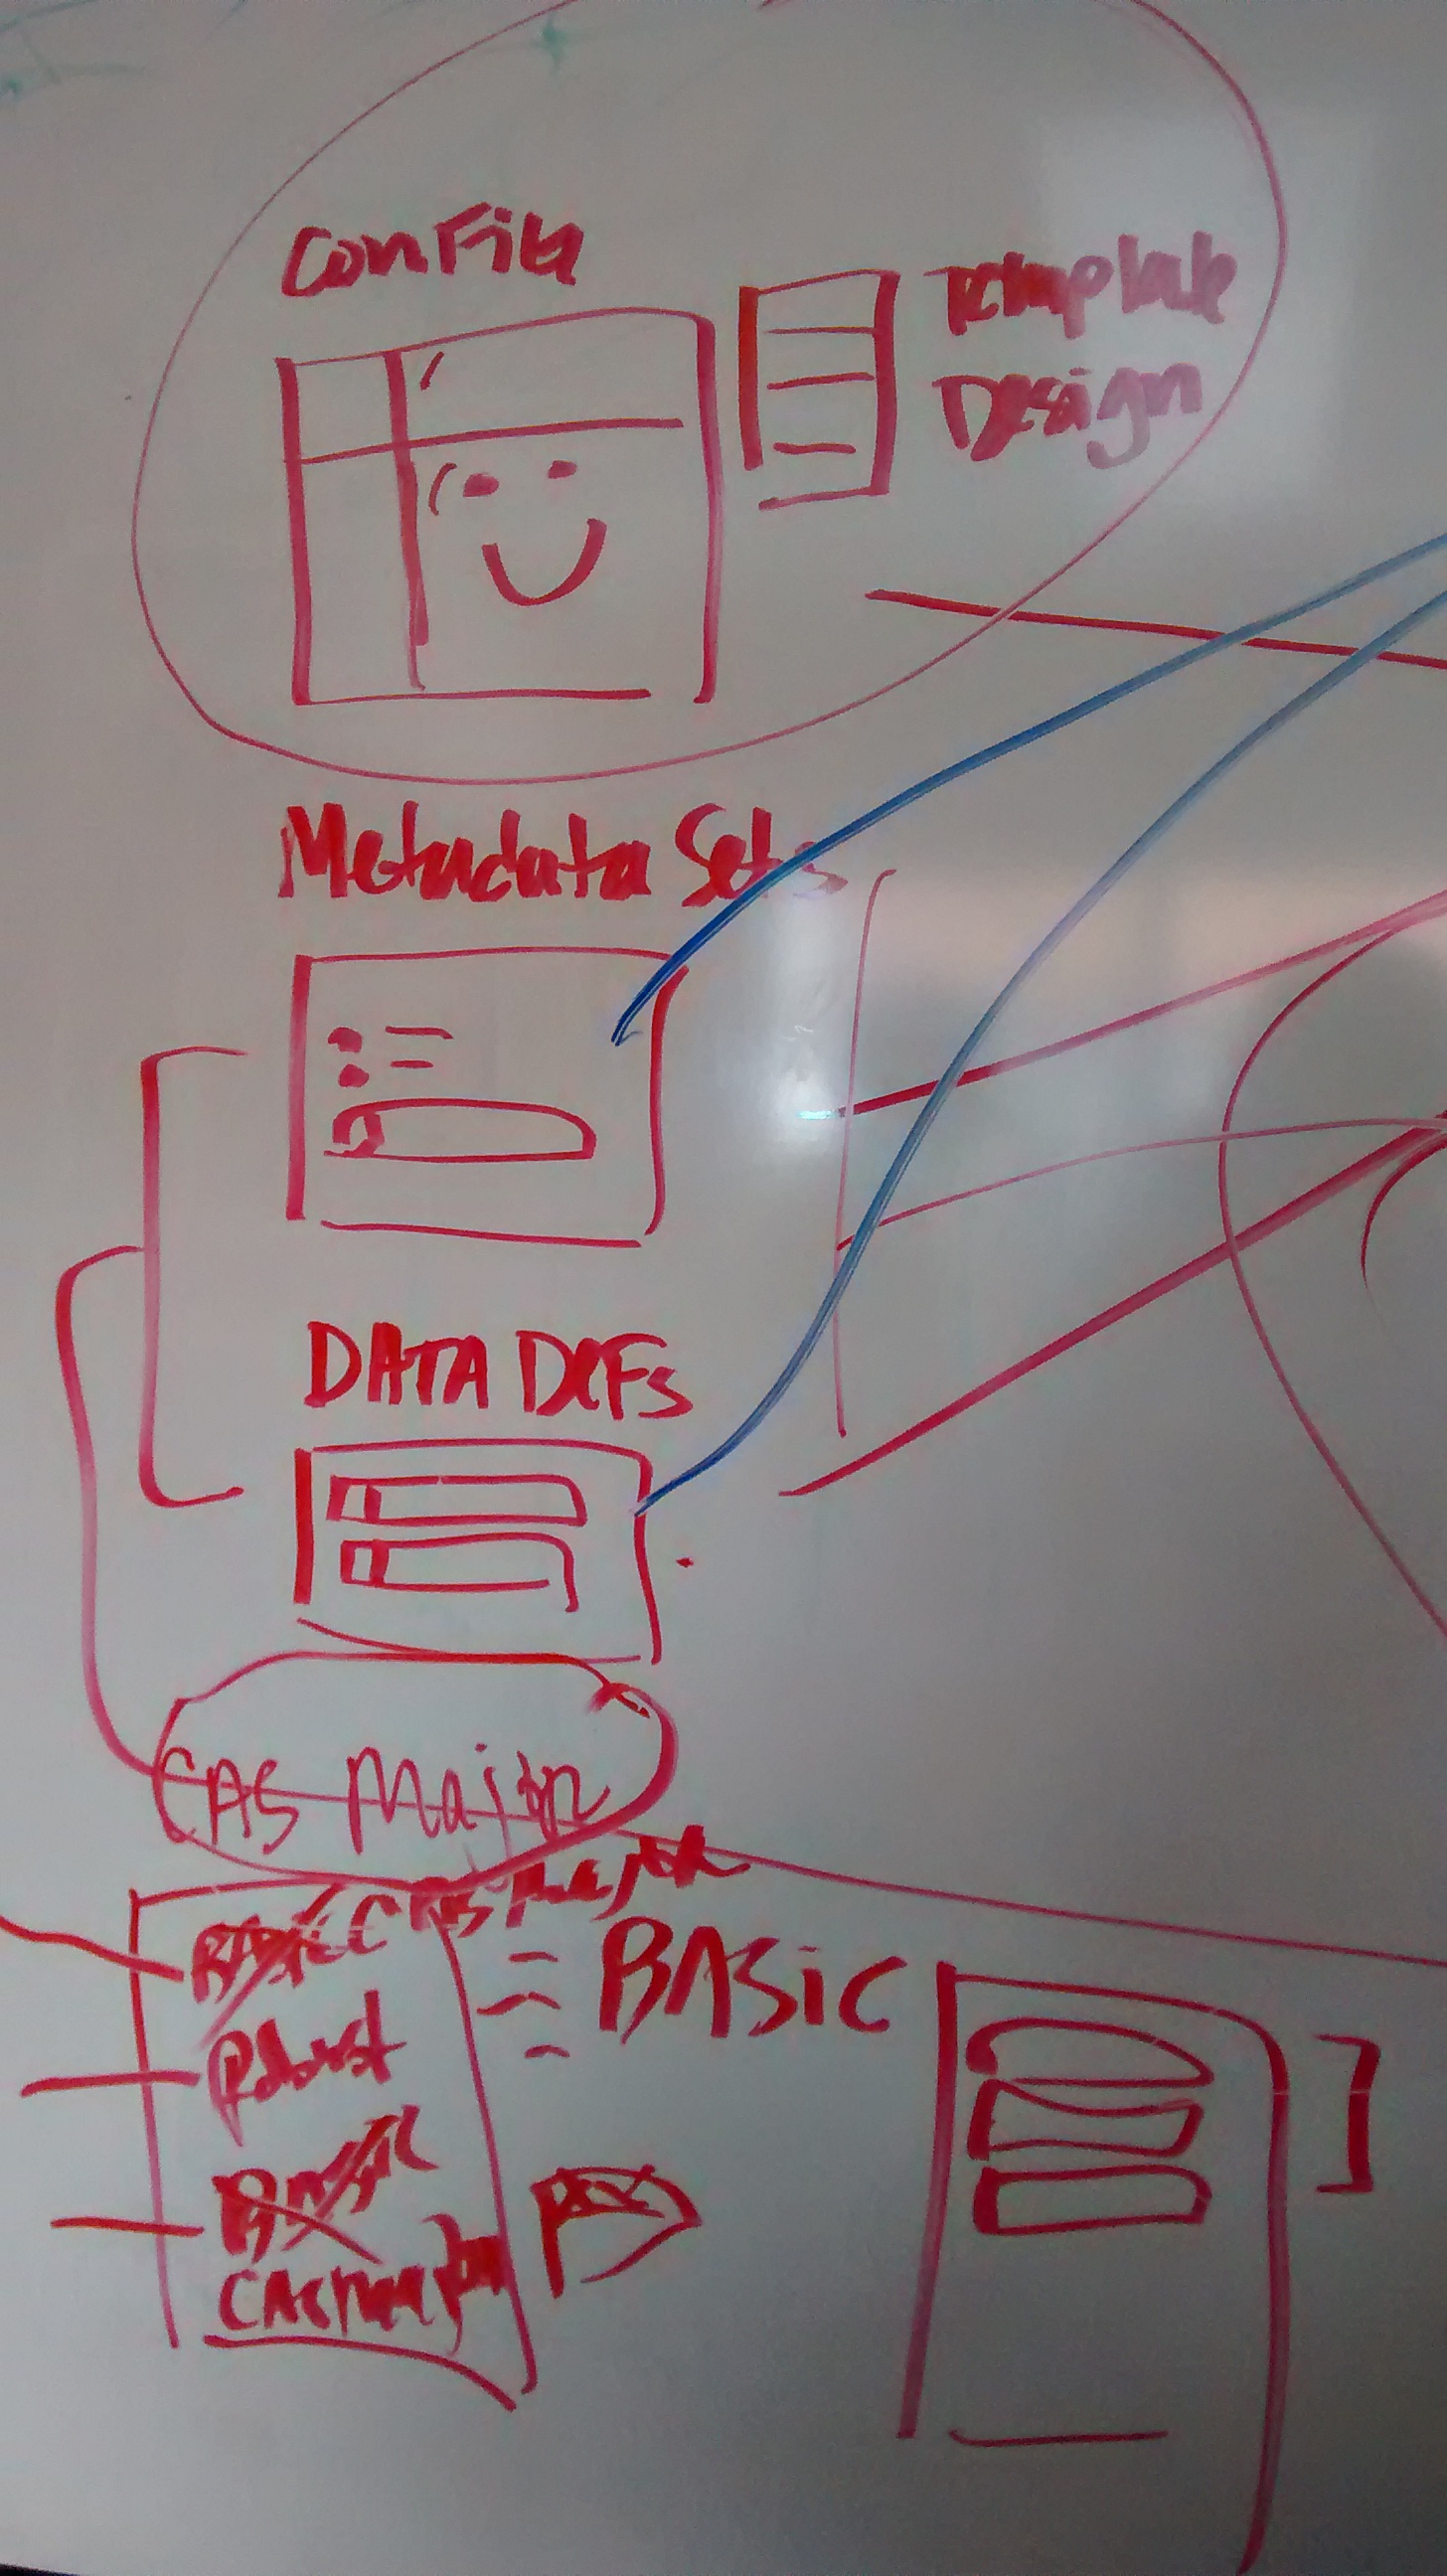 Config
Template
Design
Metadata Sets
DATA DEFs
CAS Major
CAS Major
BASIC
Robust
BASIC
CAS Major